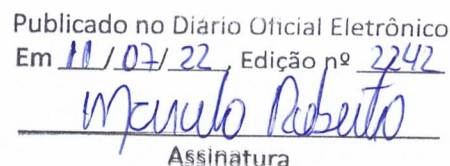 Publicado no Diário Oficial Eletrônico
Em 11/07/22, Edição nº 2242
Marcelo Roberto
Assinatura